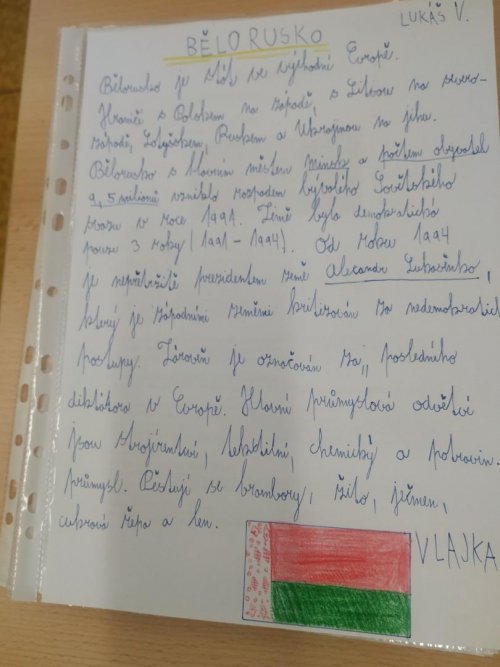 LUKÁŠ V.
BĚLORUSKO
Bělorusko je stát ve východní Evropě.
Hraničí s Polskem na západě, s Litvou na severo-
západě, Lotyšskem, Ruskem a Ukrajinou na jihu.
Bělorusko s hlavním městem Minsk a počtem obyvatel
9,5 milionů vzniklo rozpadem bývalého Sovětského
svazu v roce 1991. Země byla demokratická
pouze 3 roky (1991 - 1994). Od roku 1994
je nepřetržitě prezidentem země Alexandr Lukašenko,
který je západními zeměmi kritizován za nedemokratické
postupy. Zároveň je označován za „posledního
diktátora v Evropě. Hlavní průmyslová odvětví
jsou strojírentví, tekstilní, chemický a potravin.
průmysl. Pěstují se brambory, žito, ječmen,
cukrová řepa a len.
VLAJKA